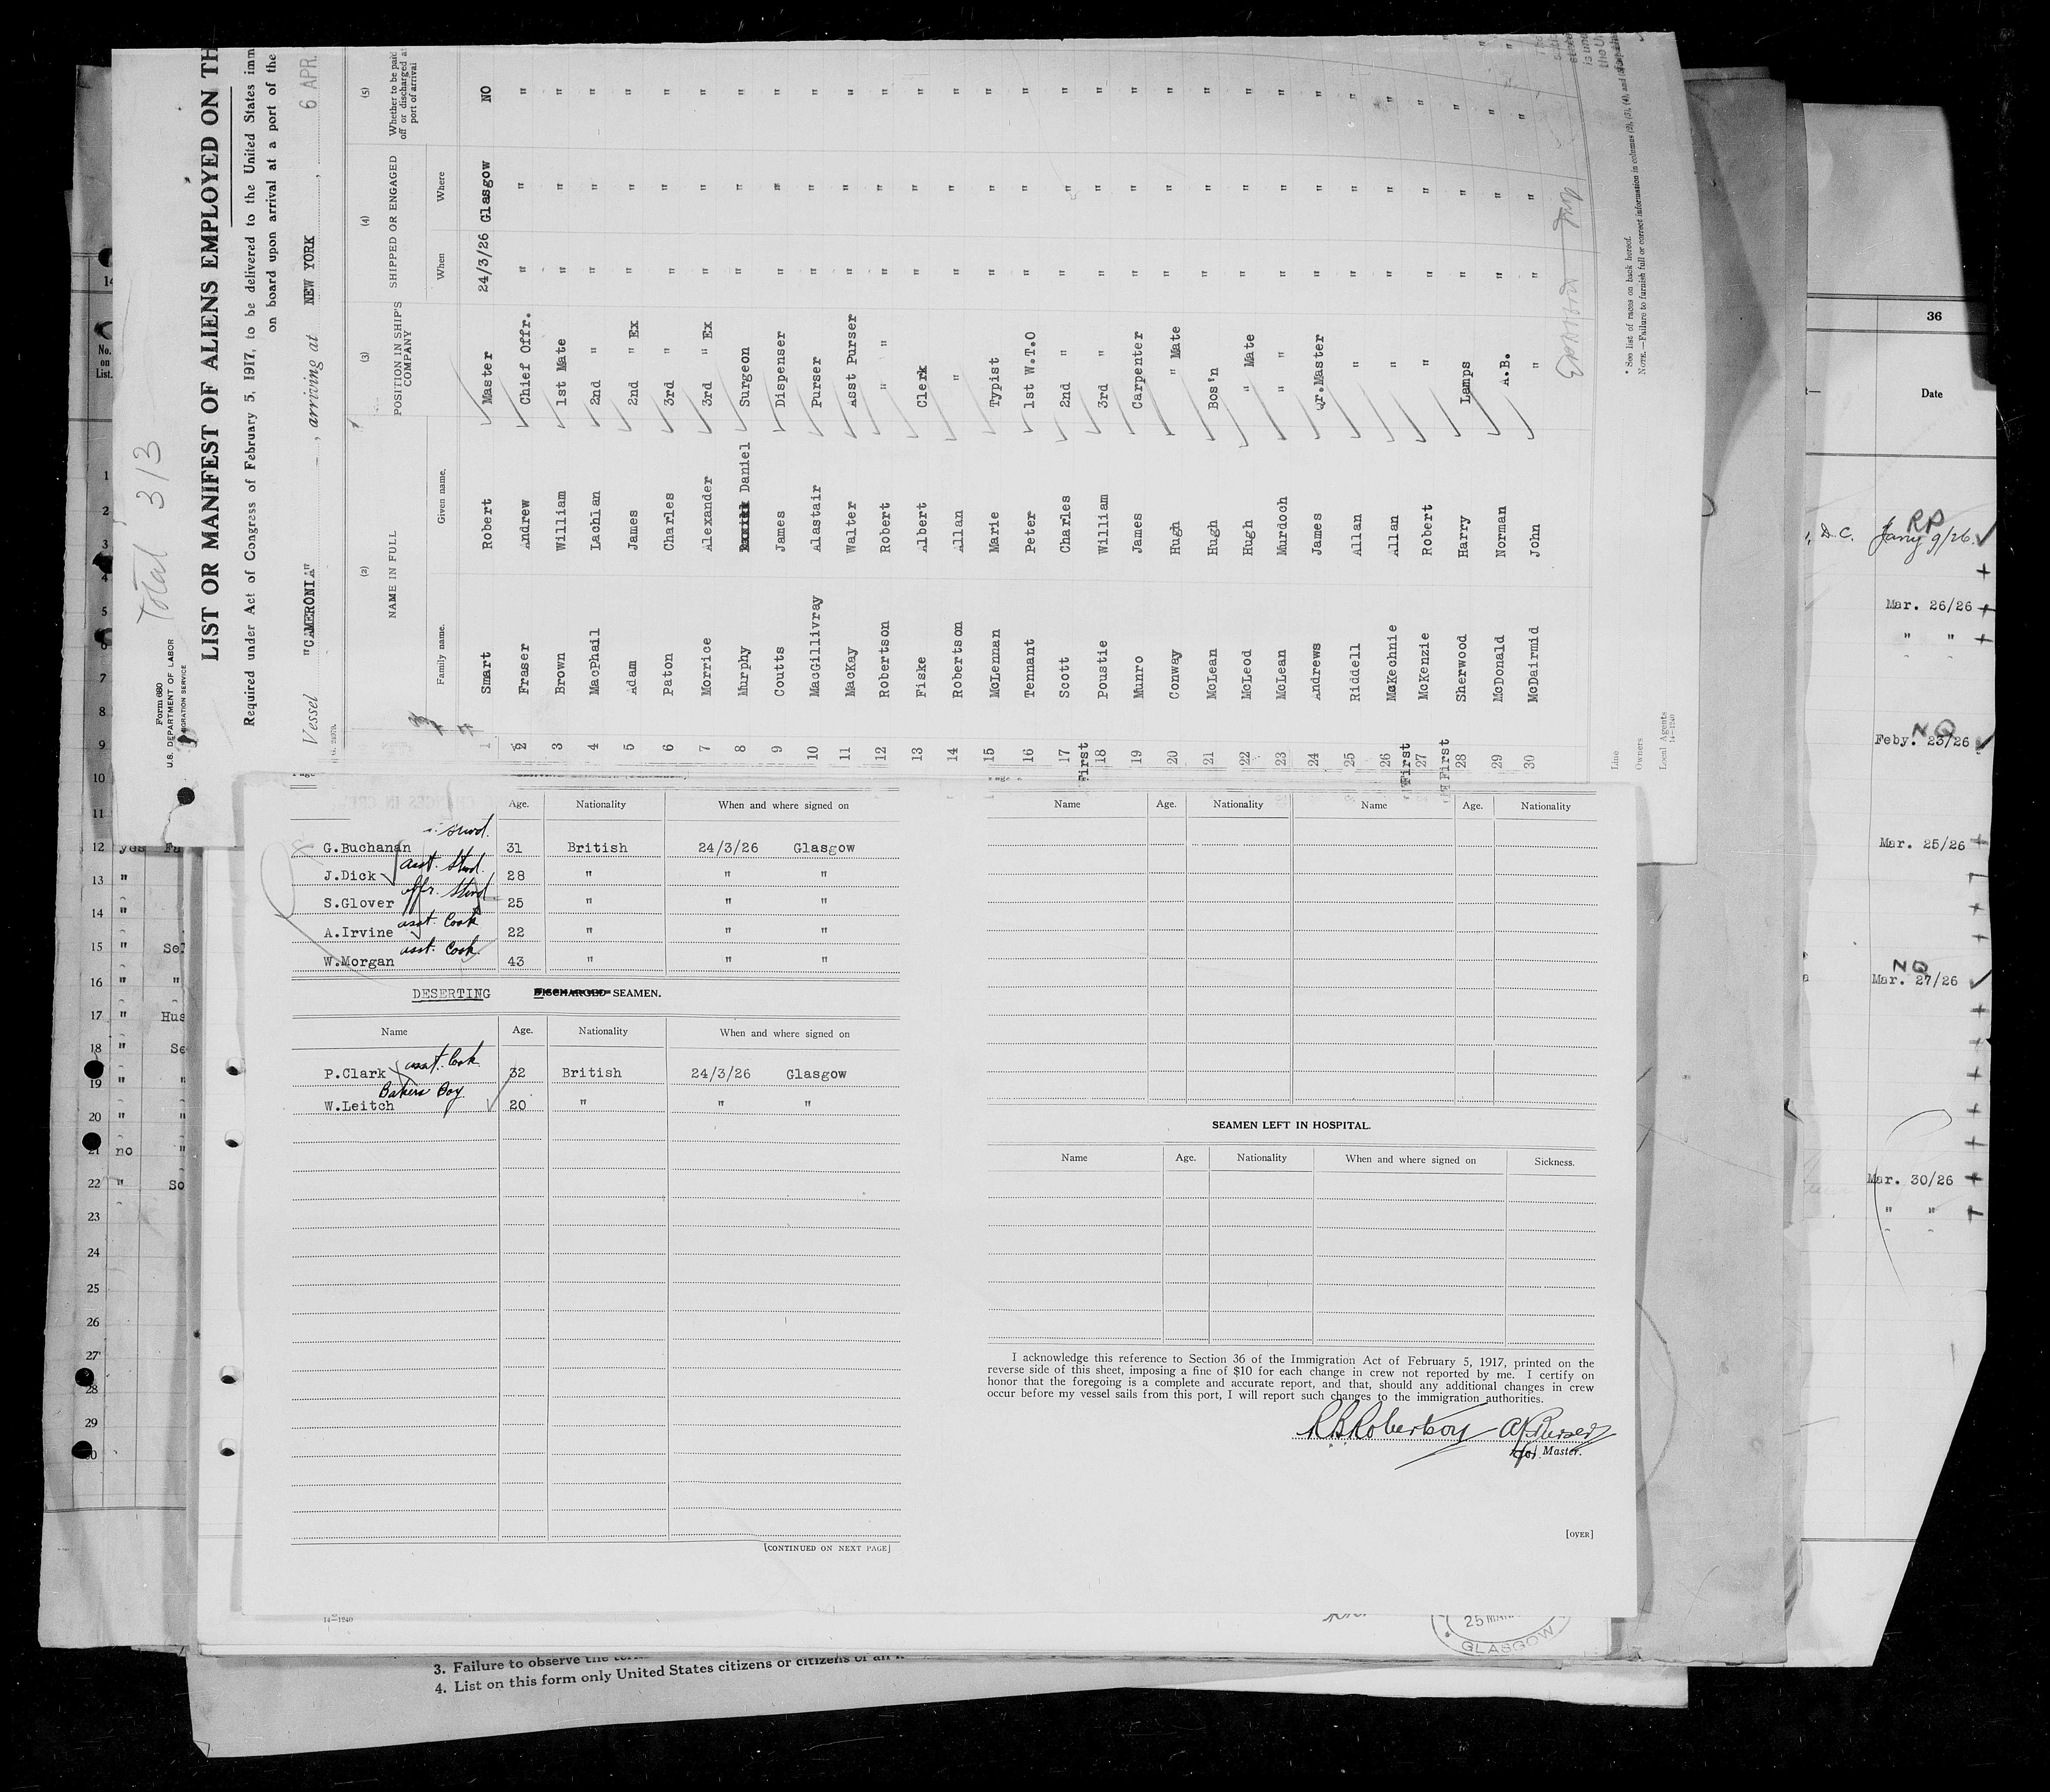 Total 313
Form 680
U.S. DEPARTMENT OF LABOR
IMMIGRATION SERVICE
LIST OR MANIFEST OF ALIENS EMPLOYED ON TH
Required under Act of Congress of February 5, 1917, to be delivered to the United States imm
on board upon arrival at a port of the
Vessel "CAMERONIA" , arriving at NEW YORK , 6 APR.
(2) (3) (4) (5)
NAME IN FULL POSITION IN SHIP'S COMPANY SHIPPED OR ENGAGED Whether to be paid off or discharged at port of arrival
Family name. Given name. When Where
1 Smart Robert Master 24/3/26 Glasgow NO
2 Fraser Andrew Chief Offr. " " "
3 Brown William 1st Mate " " "
4 MacPhail Lachlan 2nd " " " "
5 Adam James 2nd " Ex " " "
6 Paton Charles 3rd " " " "
7 Morrice Alexander 3rd " Ex " " "
8 Murphy Daniel Surgeon " " "
9 Coutts James Dispenser " " "
10 MacGillivray Alastair Purser " " "
11 MacKay Walter Asst Purser " " "
12 Robertson Robert " " " " "
13 Fiske Albert Clerk " " "
14 Robertson Allan " " " "
15 McLennan Marie Typist " " "
16 Tennant Peter 1st W.T.O " " "
17 Scott Charles 2nd " " " "
First
18 Poustie William 3rd " " " "
19 Munro James Carpenter " " "
20 Conway Hugh " Mate " " "
21 McLean Hugh Bos'n " " "
22 McLeod Hugh " Mate " " "
23 McLean Murdoch " " " " "
24 Andrews James Qr.Master " " "
25 Riddell Allan " " " "
26 McKechnie Allan " " " "
First
27 McKenzie Robert " " " "
First
28 Sherwood Harry Lamps " " "
29 McDonald Norman A.B. " " "
30 McDairmid John " " " "
Line
Owners
Local Agents
14—1240
* See list of races on back hereof.
NOTE.—Failure to furnish full or correct information in columns (2), (3), (4), and
Age. Nationality When and where signed on
stwd.
G.Buchanan 31 British 24/3/26 Glasgow
asst. Stwd.
J.Dick 28 " " "
offr. Stwd
S.Glover 25 " " "
asst. Cook
A.Irvine 22 " " "
asst. Cook
W.Morgan 43 " " "
DESERTING DISCHARGED SEAMEN.
Name Age. Nationality When and where signed on
asst. Cook
P.Clark 32 British 24/3/26 Glasgow
Bakers Boy
W.Leitch 20 " " "
[CONTINUED ON NEXT PAGE]
14—1240
Name Age. Nationality Name Age. Nationality
SEAMEN LEFT IN HOSPITAL.
Name Age. Nationality When and where signed on Sickness.
I acknowledge this reference to Section 36 of the Immigration Act of February 5, 1917, printed on the
reverse side of this sheet, imposing a fine of $10 for each change in crew not reported by me. I certify on
honor that the foregoing is a complete and accurate report, and that, should any additional changes in crew
occur before my vessel sails from this port, I will report such changes to the immigration authorities.
R.B.Robertson A/Purser
for Master.
[OVER]
25 MAR
GLASGOW
3. Failure to observe the
4. List on this form only United States citizens or citizens of an
14
No. on List.
1
2
3
4
5
6
7
8
9
10
11
12 yes Fa
13 "
14 "
15 " Se
16 " "
17 " Hus
18 " Se
19 " "
20 " "
21 no "
22 " So
23
24
25
26
27
28
29
30
36
Date
RP
, D.C. Jany 9/26
Mar. 26/26
" "
NQ
Feby. 23/26
Mar. 25/26
NQ
Mar. 27/26
Mar. 30/26
" "